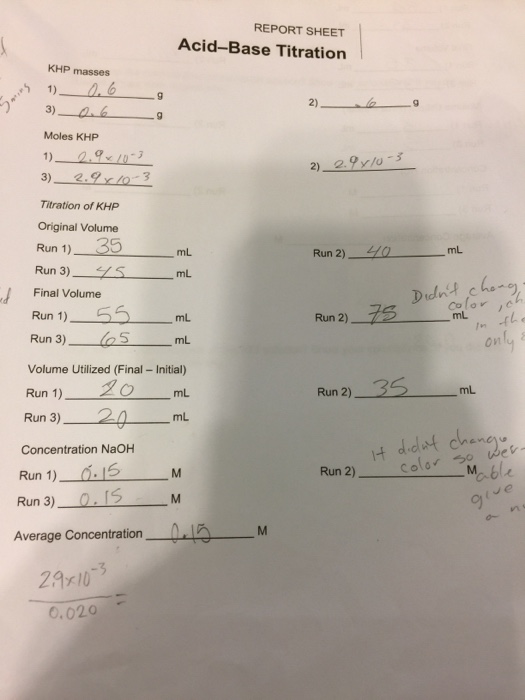 REPORT SHEET
Acid–Base Titration
KHP masses
1) 0.6 g 2) .6 g
3) 0.6 g
Moles KHP
1) 2.9×10-3 2) 2.9×10-3
3) 2.9×10-3
Titration of KHP
Original Volume
Run 1) 35 mL Run 2) 40 mL
Run 3) 45 mL
Final Volume Didn't
color
Run 1) 55 mL Run 2) 75 mL
in
Run 3) 65 mL only
Volume Utilized (Final – Initial)
Run 1) 20 mL Run 2) 35 mL
Run 3) 20 mL
Concentration NaOH It didnt change
color so
Run 1) 0.15 M Run 2) M able
give
Run 3) 0.15 M a
Average Concentration 0.15 M
2.9×10-3
0.020 =